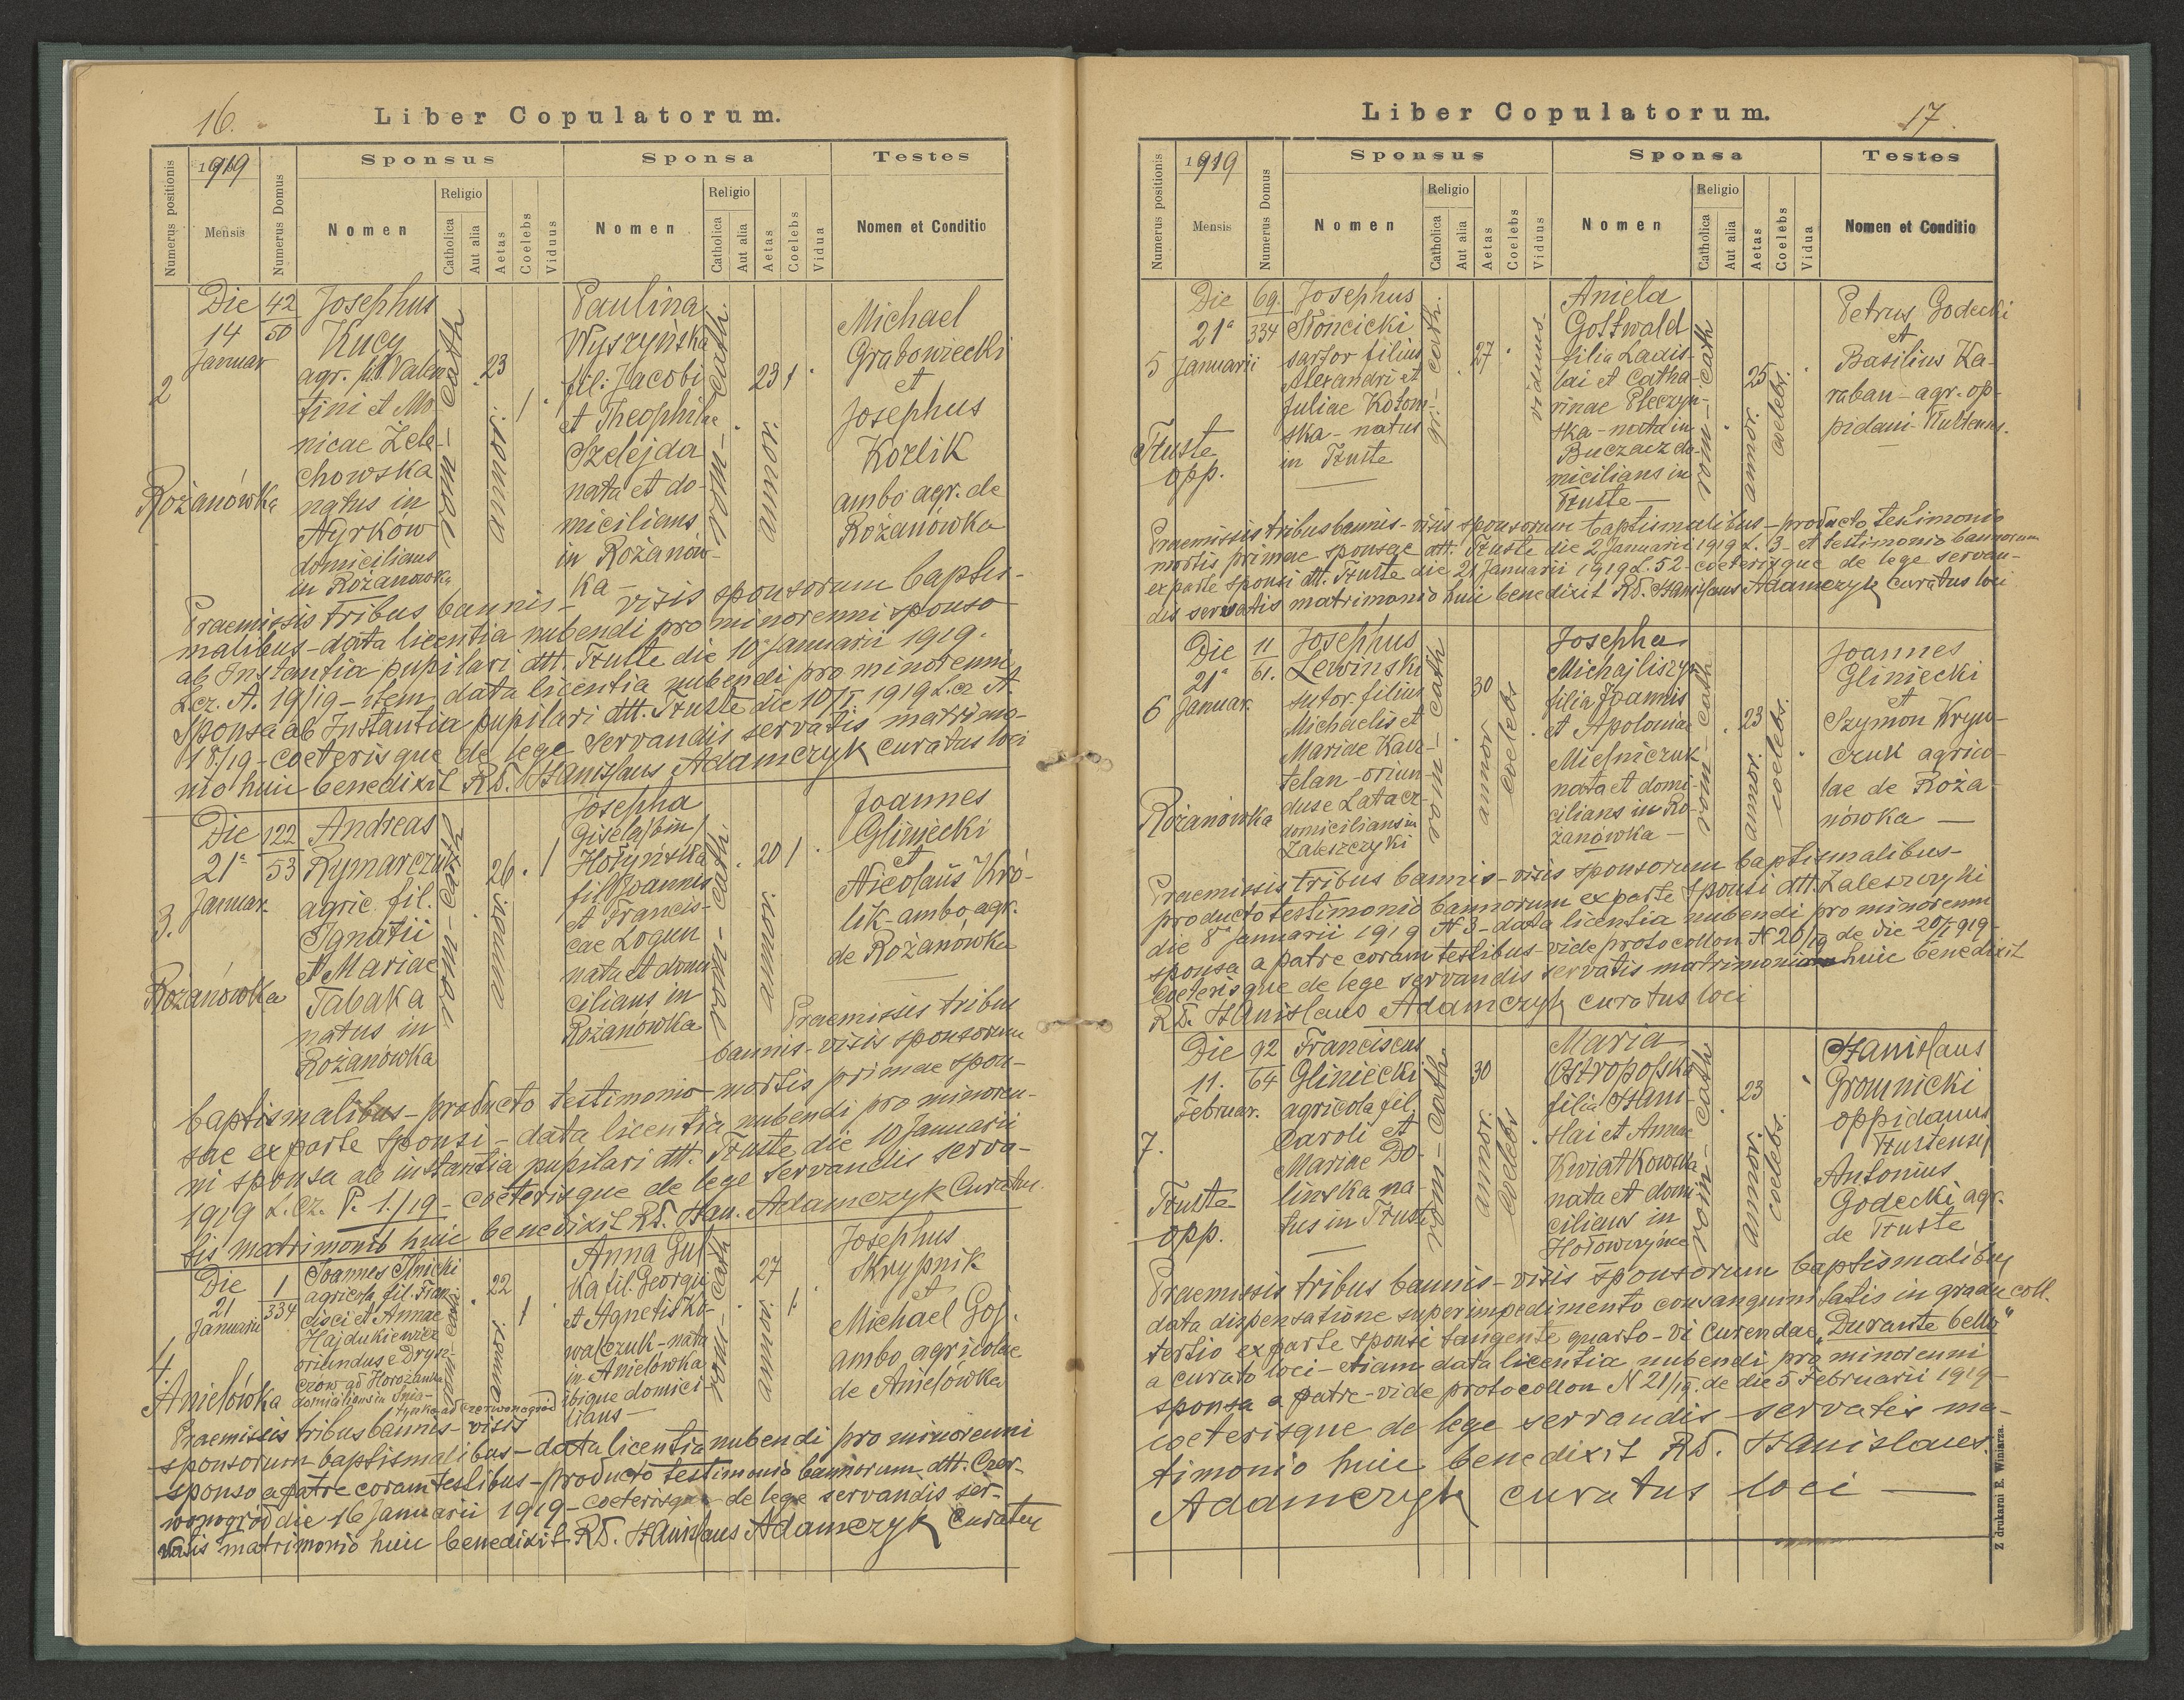 16.
Liber Copulatorum.
Numerus positionis
1919
Mensis
Numerus Domus
Sponsus
Nomen
Religio
Catholica
Aut alia
Aetas
Coelebs
Viduus
Sponsa
Nomen
Religio
Catholica
Aut alia
Aetas
Coelebs
Vidua
Testes
Nomen et Conditio
2
Die
14
Januar
Rożanówka
42
50
Josephus
Kucy
agr. fil. Valen-
tini et Mo-
nicae Żele-
chowska
natus in
Nyrków
domicilians
in Rożanowka
rom - cath
23
annor.
1
Paulina
Wyszyńska
fil: Jacobi
et Theophilae
Szelejda
nata et do-
micilians
in Rożanów-
ka -
rom - cath.
23
annor.
1
Michael
Grabowiecki
et
Josephus
Kozlik
ambo agr. de
Rożanówka
Praemissis tribus bannis - visis sponsorum baptis-
malibus - data licentia nubendi pro minorenni sponso
ab Instantia pupilari dtt. Tłuste die 10 Januarii 1919.
L.cz. A. 19/19 - item data licentia nubendi pro minorenni
sponsa ab Instantia pupilari dtt. Tłuste die 10/I. 1919 L.cz A.
18/19 - coeterisque de lege servandis servatis matrimo-
nio huic benedixit RD. Stanislaus Adamczyk curatus loci
3.
Die
21ª
Januar.
Rożanówka
122
53
Andreas
Rymarczuk
agric. fil.
Ignatii
et Mariae
Tabaka
natus in
Rożanówka
rom - cath
26
annor.
1
Josepha
Gisela/bin/
Hołyńska
fil. Joannis
et Francis-
cae Logun
nata et domi-
cilians in
Rożanówka
rom - cath.
20
annor.
1
Joannes
Gliniecki
et
Nicolaus Kró-
lik - ambo agr.
de Rożanówka
Praemissis tribus
bannis - visis sponsorum
baptismalibus - producto testimonio mortis primae spon-
sae ex parte sponsi - data licentia nubendi pro minoren-
ni sponsa ab instantia pupilari dtt. Tłuste die 10 Januarii
1919 L.cz. P. 1./19 - coeterisque de lege servandis serva-
tis matrimonio huic benedixit RD. Stan. Adamczyk Curatus.
4
Die
21
Januarii
Anielówka
1
334
Joannes Ilnicki
agricola fil. Fran-
cisci et Annae
Hajdukiewicz
oriundus e Drysz-
czow ad Horozanka
domicilians in
ad Czerwonogród
rom - cath
22
annor.
1
Anna Gul
ka fil. Georgii
et Agnetis Ko-
walczuk - nata
in Anielówka
ibique domici-
lians -
rom - cath
27
annor.
1.
Josephus
Skrypnik
et
Michael Goj.
ambo agricolae
de Anielówka
Praemissis tribus bannis - visis
sponsorum baptismalibus - data licentia nubendi pro minorenni
sponso a patre coram testibus - producto testimonio bannorum dtt. Czer-
wonogród die 16 Januarii 1919 - coeterisque de lege servandis ser-
vatis matrimonio huic benedixit RD. Stanislaus Adamczyk Curatus
Liber Copulatorum.
17.
Numerus positionis
1919
Mensis
Numerus Domus
Sponsus
Nomen
Religio
Catholica
Aut alia
Aetas
Coelebs
Viduus
Sponsa
Nomen
Religio
Catholica
Aut alia
Aetas
Coelebs
Vidua
Testes
Nomen et Conditio
5
Die
21ª
Januarii
Tłuste
opp.
69.
334
Josephus
Słoncicki
sartor filius
Alexandri et
Juliae Kotom-
ska - natus
in Tłuste
gr. - cath.
27
viduus -
Aniela
Gottwald
filia Ladis-
lai et Catha-
rinae Pleczyń-
ska - nata in
Buczacz do-
micilians in
Tłuste -
rom - cath
25
annor.
coelebs.
Petrus Godecki
et
Basilius Ka-
raban - agr. op-
pidani Tłustens.
Praemissis tribus bannis - visis sponsorum baptismalibus - producto testimonio
mortis primae sponsae dtt. Tłuste die 2 Januarii 1919 L. 3 - et testimonio bannorum
ex parte sponsi dtt. Tłuste die 21 Januarii 1919 L. 52 - coeterisque de lege servan-
dis servatis matrimonio huic benedixit RD. Stanislaus Adamczyk curatus loci
6
Die
21ª
Januar.
Rożanówka
11
61.
Josephus
Lewinski
sutor. filius
Michaelis et
Mariae Kau-
telan - oriun-
dus e Latacz
domicilians in
Zaleszczyki
rom - cath
30
annor.
coelebs
Josepha
Michajliszyn
filia Joannis
et Apoloniae
Mielniczuk
nata et domi-
cilians in Ro-
żanówka -
rom - cath
23
annor.
coelebs.
Joannes
Gliniecki
et
Szymon Kryw-
czuk agrico-
lae de Roża-
nówka -
Praemissis tribus bannis - visis sponsorum baptismalibus -
producto testimonio bannorum ex parte sponsi dtt. Zaleszczyki
die 8ª Januarii 1919 N 3 - data licentia nubendi pro minorenni
sponsa a patre coram testibus - vide protocollon N 20/19 de die 20/I 919 -
coeterisque de lege servandis servatis matrimonio huic benedixit
RD. Stanislaus Adamczyk curatus loci
7.
Die
11.
Februar.
Tłuste
opp.
92
64
Franciscus
Gliniecki
agricola fil.
Caroli et
Mariae Do-
linska na-
tus in Tłuste
rom - cath.
30
annor.
coelebs
Maria
Ostropolska
filia Stani-
slai et Annae
Kwiatkowska
nata et domi-
cilians in
Hołowczyńce
rom - cath
23
annor.
coelebs.
Stanislaus
Gromnicki
oppidanus
Tłustensis
Antonius
Godecki agr.
de Tłuste
Praemissis tribus bannis - visis sponsorum baptismalibus
data dispensatione super impedimento consanguinitatis in gradu coll.
tertio ex parte sponsi tangente quarto - vi Curendae "Durante bello"
a curato loci - etiam data licentia nubendi pro minorenni
sponsa a patre - vide protocollon N 21/19. de die 5 Februarii 1919 -
coeterisque de lege servandis servatis ma-
trimonio huic benedixit RD. Stanislaus
Adamczyk curatus loci -
Z drukarni E. Winiarza.